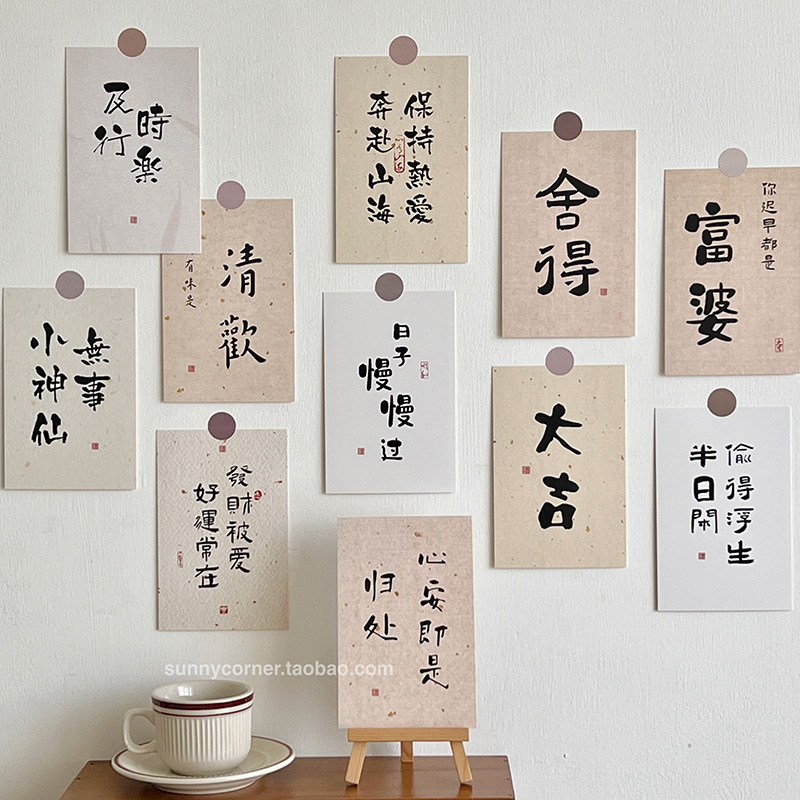 及時
行樂
保持熱愛
奔赴山海
舍得
你迟早都是
富婆
有味是
清歡
無事
小神仙
日子
慢慢
过
大吉
偷得浮生
半日閑
發財被爱
好運常在
心安即是
归处
sunnycorner.taobao.com